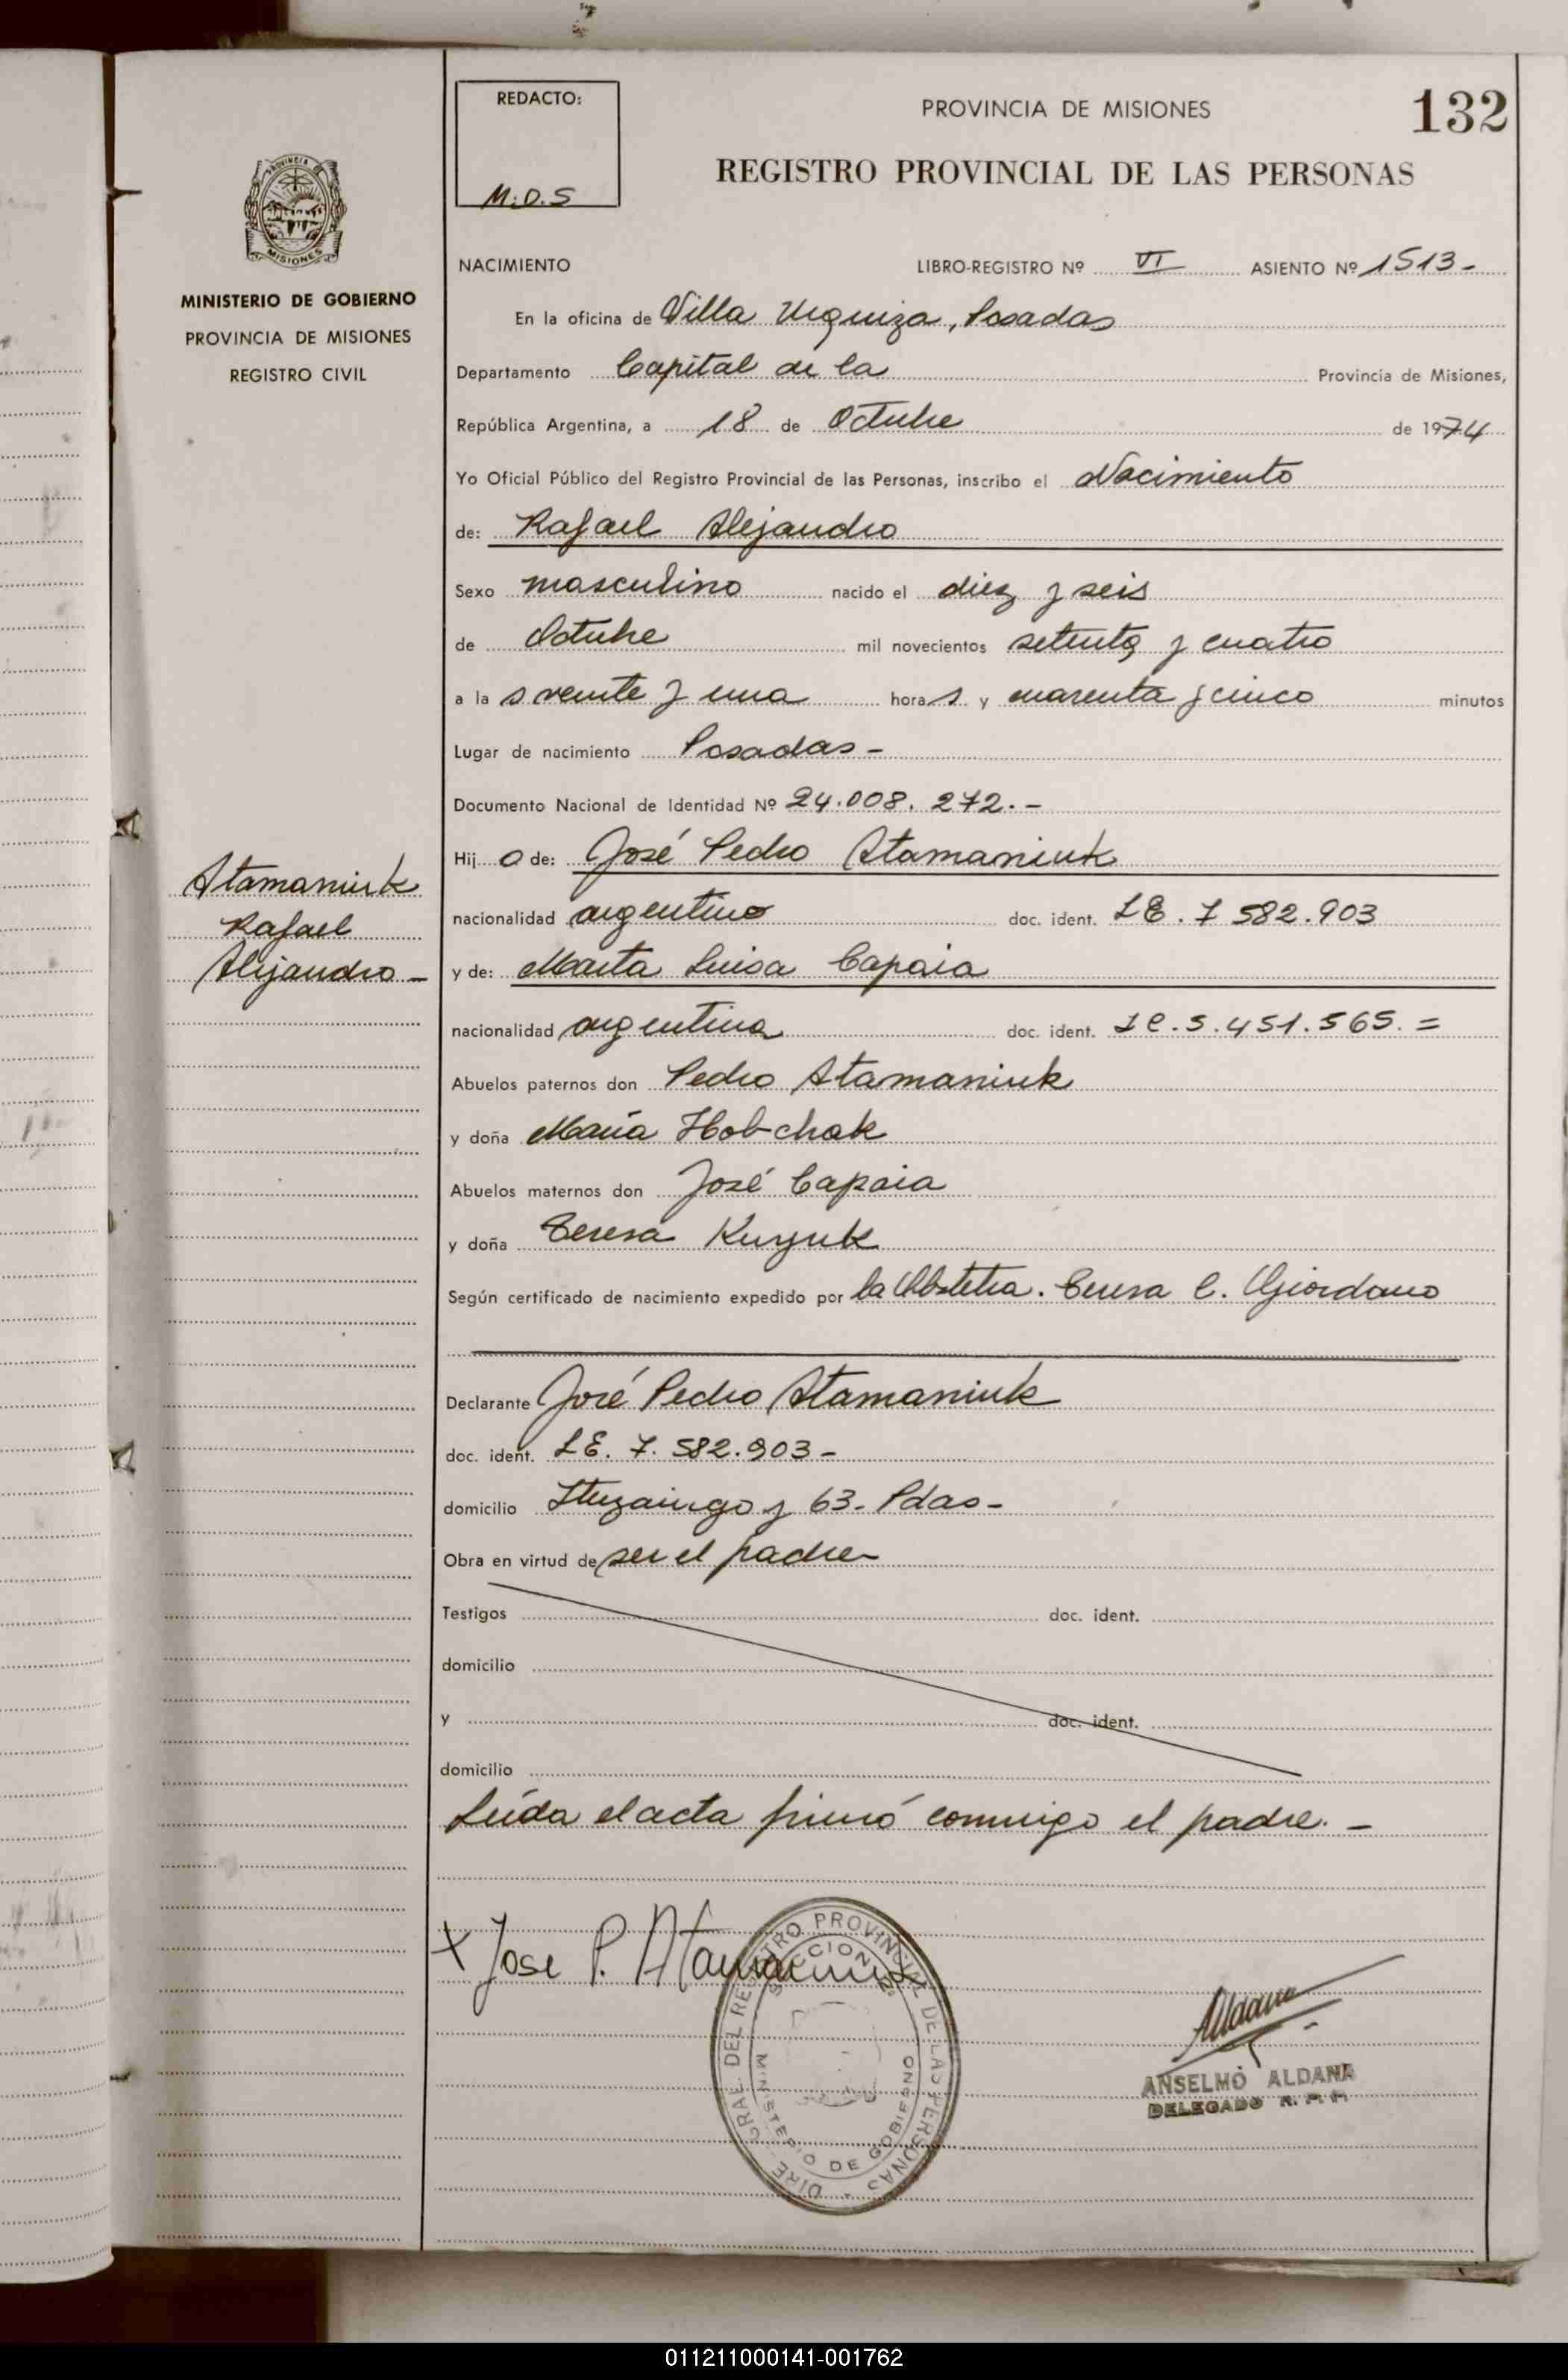 132
REDACTO:
M.D.S
PROVINCIA DE MISIONES
REGISTRO PROVINCIAL DE LAS PERSONAS
PROVINCIA
MISIONES
MINISTERIO DE GOBIERNO
PROVINCIA DE MISIONES
REGISTRO CIVIL
NACIMIENTO LIBRO-REGISTRO Nº VI ASIENTO Nº 1513-
En la oficina de Villa Urquiza, Posadas
Departamento Capital de la Provincia de Misiones,
República Argentina, a 18 de Octubre de 1974
Yo Oficial Público del Registro Provincial de las Personas, inscribo el Nacimiento
de: Rafael Alejandro
Sexo masculino nacido el diez y seis
de Octubre mil novecientos setenta y cuatro
a la s veinte y una hora s y cuarenta y cinco minutos
Lugar de nacimiento Posadas -
Documento Nacional de Identidad Nº 24.008.272.-
Atamaniuk
Rafael
Alejandro -
Hij o de: José Pedro Atamaniuk
nacionalidad argentino doc. ident. LE. 7 582.903
y de: Marta Luisa Capaia
nacionalidad argentina doc. ident. LC. 5.451.565.=
Abuelos paternos don Pedro Atamaniuk
y doña María Hob-chak
Abuelos maternos don José Capaia
y doña Teresa
Según certificado de nacimiento expedido por la Obstetra. Teresa C. Giordano
Declarante José Pedro Atamaniuk
doc. ident. LE. 7. 582.903-
domicilio Ituzaingo y 63- Pdas-
Obra en virtud de ser el padre-
Testigos doc. ident.
domicilio
y doc. ident.
domicilio
Leída el acta firmó conmigo el padre. -
x Jose P. Atamaniuk
DIRE. GRAL. DEL REGISTRO PROVINCIAL DE LAS PERSONAS
MINISTERIO DE GOBIERNO
Aldana
ANSELMO ALDANA
DELEGADO R. P. P.
011211000141-001762